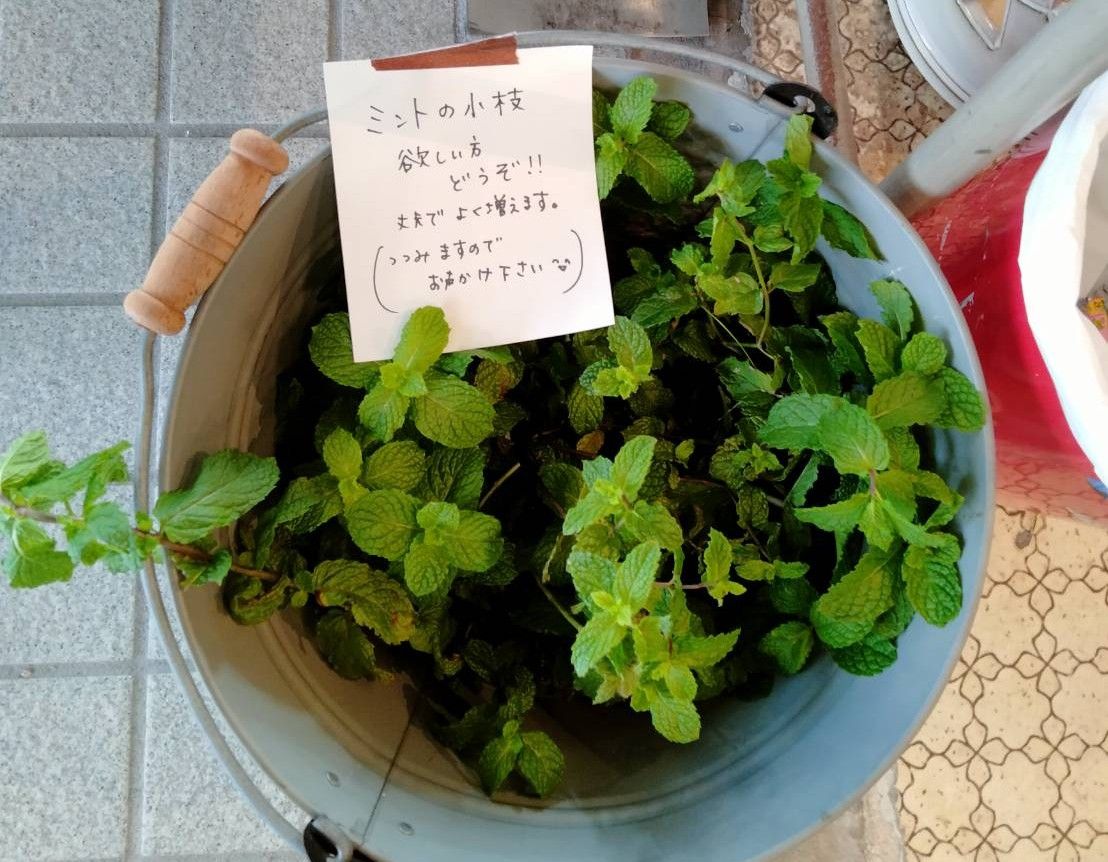 ミントの小枝
欲しい方
どうぞ!!
丈夫でよく増えます。
(つつみますので
お声かけ下さい)